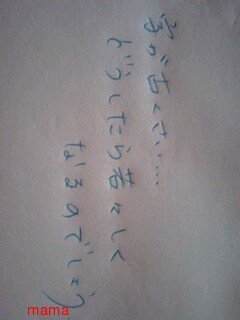 字が古くさい…
どうしたら若々しく
なるのでしょう
mama